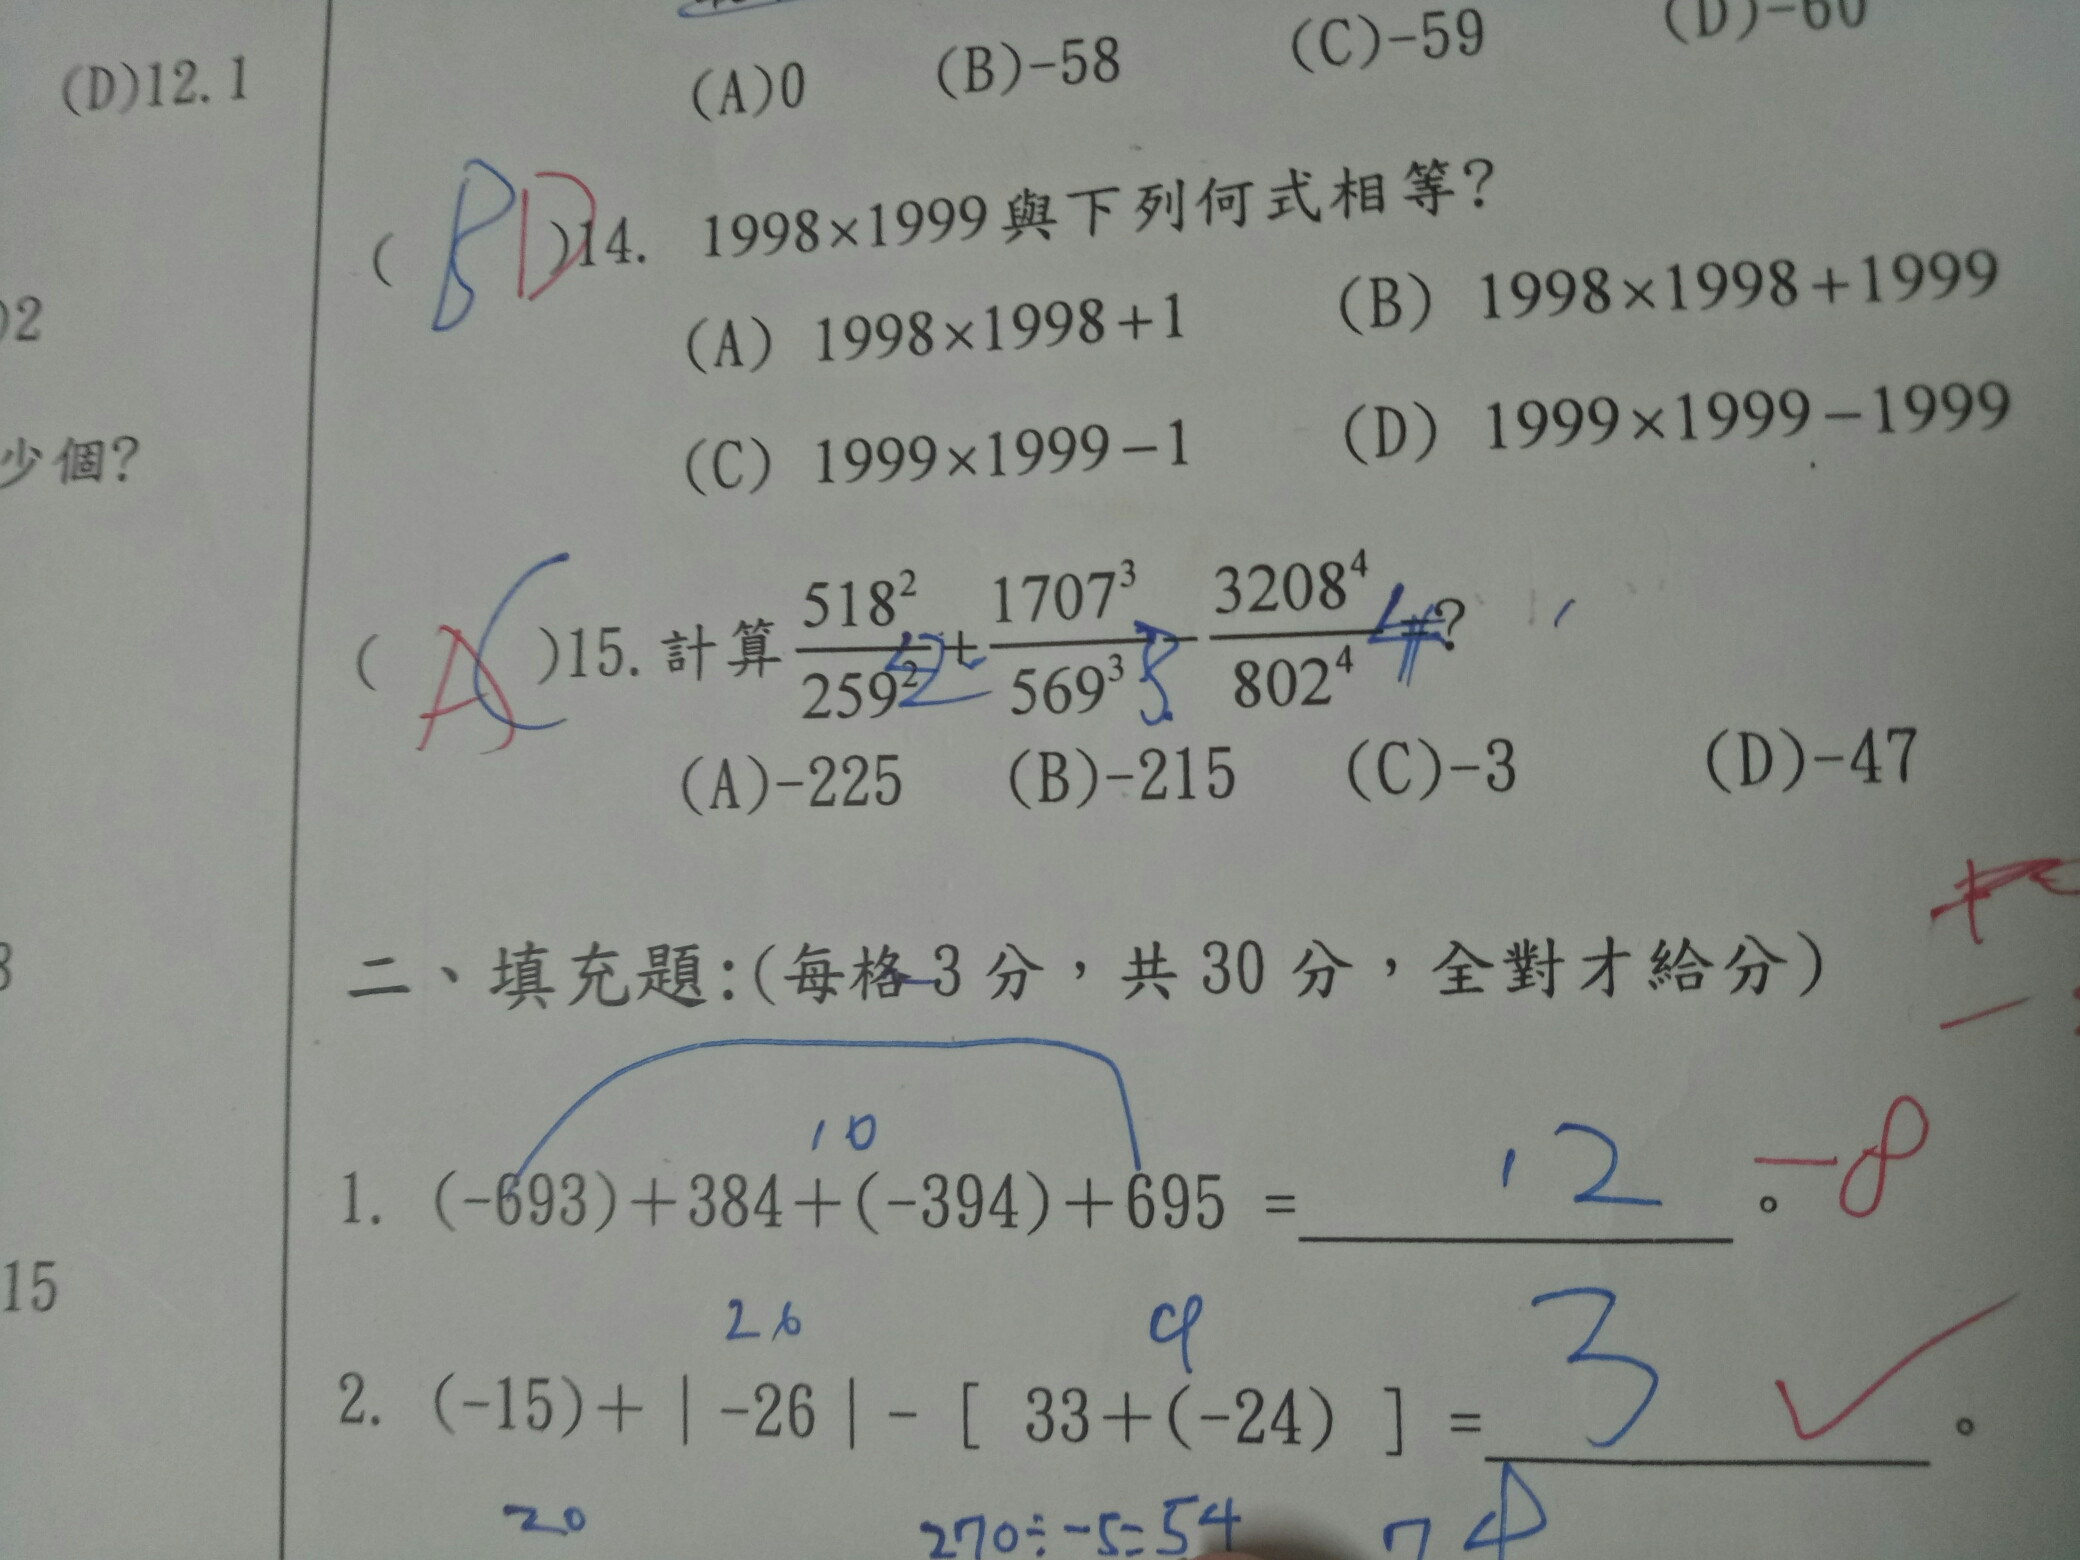 (D)12.1
)2
少個?
3
15
(A)0 (B)-58 (C)-59 (D)-60
( BD )14. 1998×1999與下列何式相等?
(A) 1998×1998+1 (B) 1998×1998+1999
(C) 1999×1999-1 (D) 1999×1999-1999
( AC )15. 計算 518²/259² + 1707³/569³ - 3208⁴/802⁴ =?
2 3 4
(A)-225 (B)-215 (C)-3 (D)-47
二、填充題:(每格3分，共30分，全對才給分)
10
1. (-693)+384+(-394)+695 = 12 。 -8
26 9
2. (-15)+|-26|-[ 33+(-24) ] = 3 。
20 270÷-5=54 74